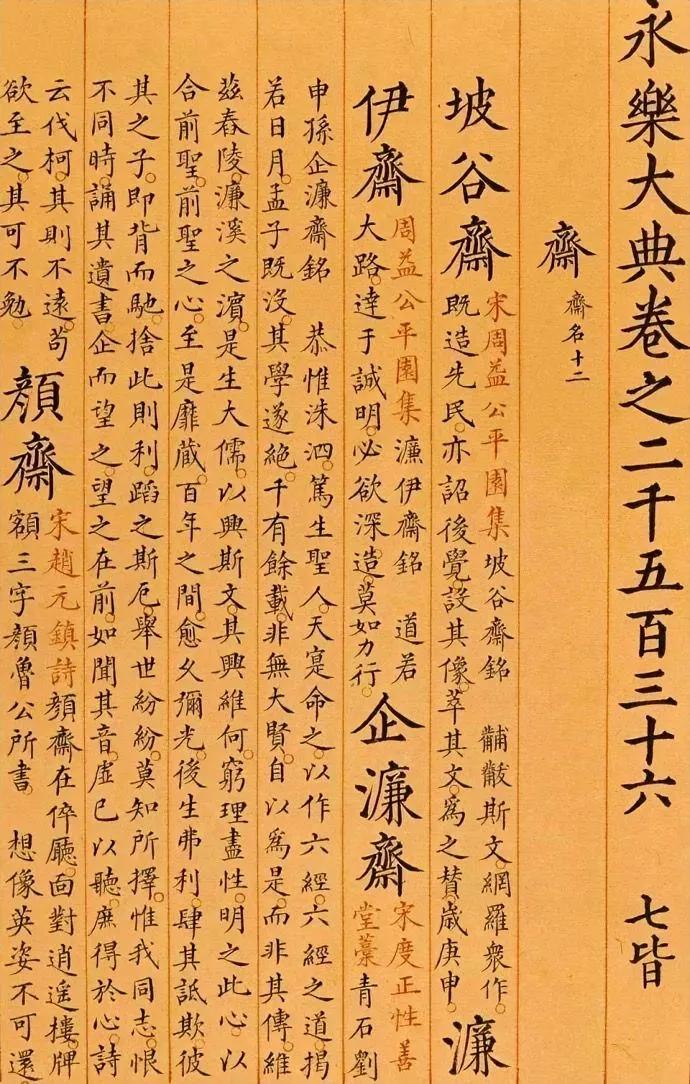 永樂大典卷之二千五百三十六 七皆
齋 齋名十二
坡谷齋
宋周益公平園集坡谷齋銘 黼黻斯文。網羅衆作。
既造先民。亦詔後覺。設其像。萃其文。爲之賛。歲庚申。
濂
伊齋
周益公平園集 濂伊齋銘 道若
大路。達于誠明。必欲深造。莫如力行。
企濂齋
宋度正性善
堂藁青石劉
申孫企濂齋銘 恭惟洙泗。篤生聖人。天寔命之。以作六經。六經之道。揭
若日月。孟子既没。其學遂絶。千有餘載。非無大賢。自以爲是。而非其傳。維
兹舂陵。濂溪之濆。是生大儒。以興斯文。其興維何。窮理盡性。明之此心。以
合前聖。前聖之心。至是靡藏。百年之間。愈乆彌光。後生弗利。肆其詆欺。彼
其之子。即背而馳。捨此則利。蹈之斯厄。舉世紛紛。莫知所擇。惟我同志。恨
不同時。誦其遺書。企而望之。望之在前。如聞其音。虚已以聽。庶得於心。詩
云伐柯。其則不遠。苟
欲至之。其可不勉。
顔齋
宋趙元鎮詩顔齋在倅廳。靣對逍遥樓。牌
額三字顔魯公所書。 想像英姿不可還。